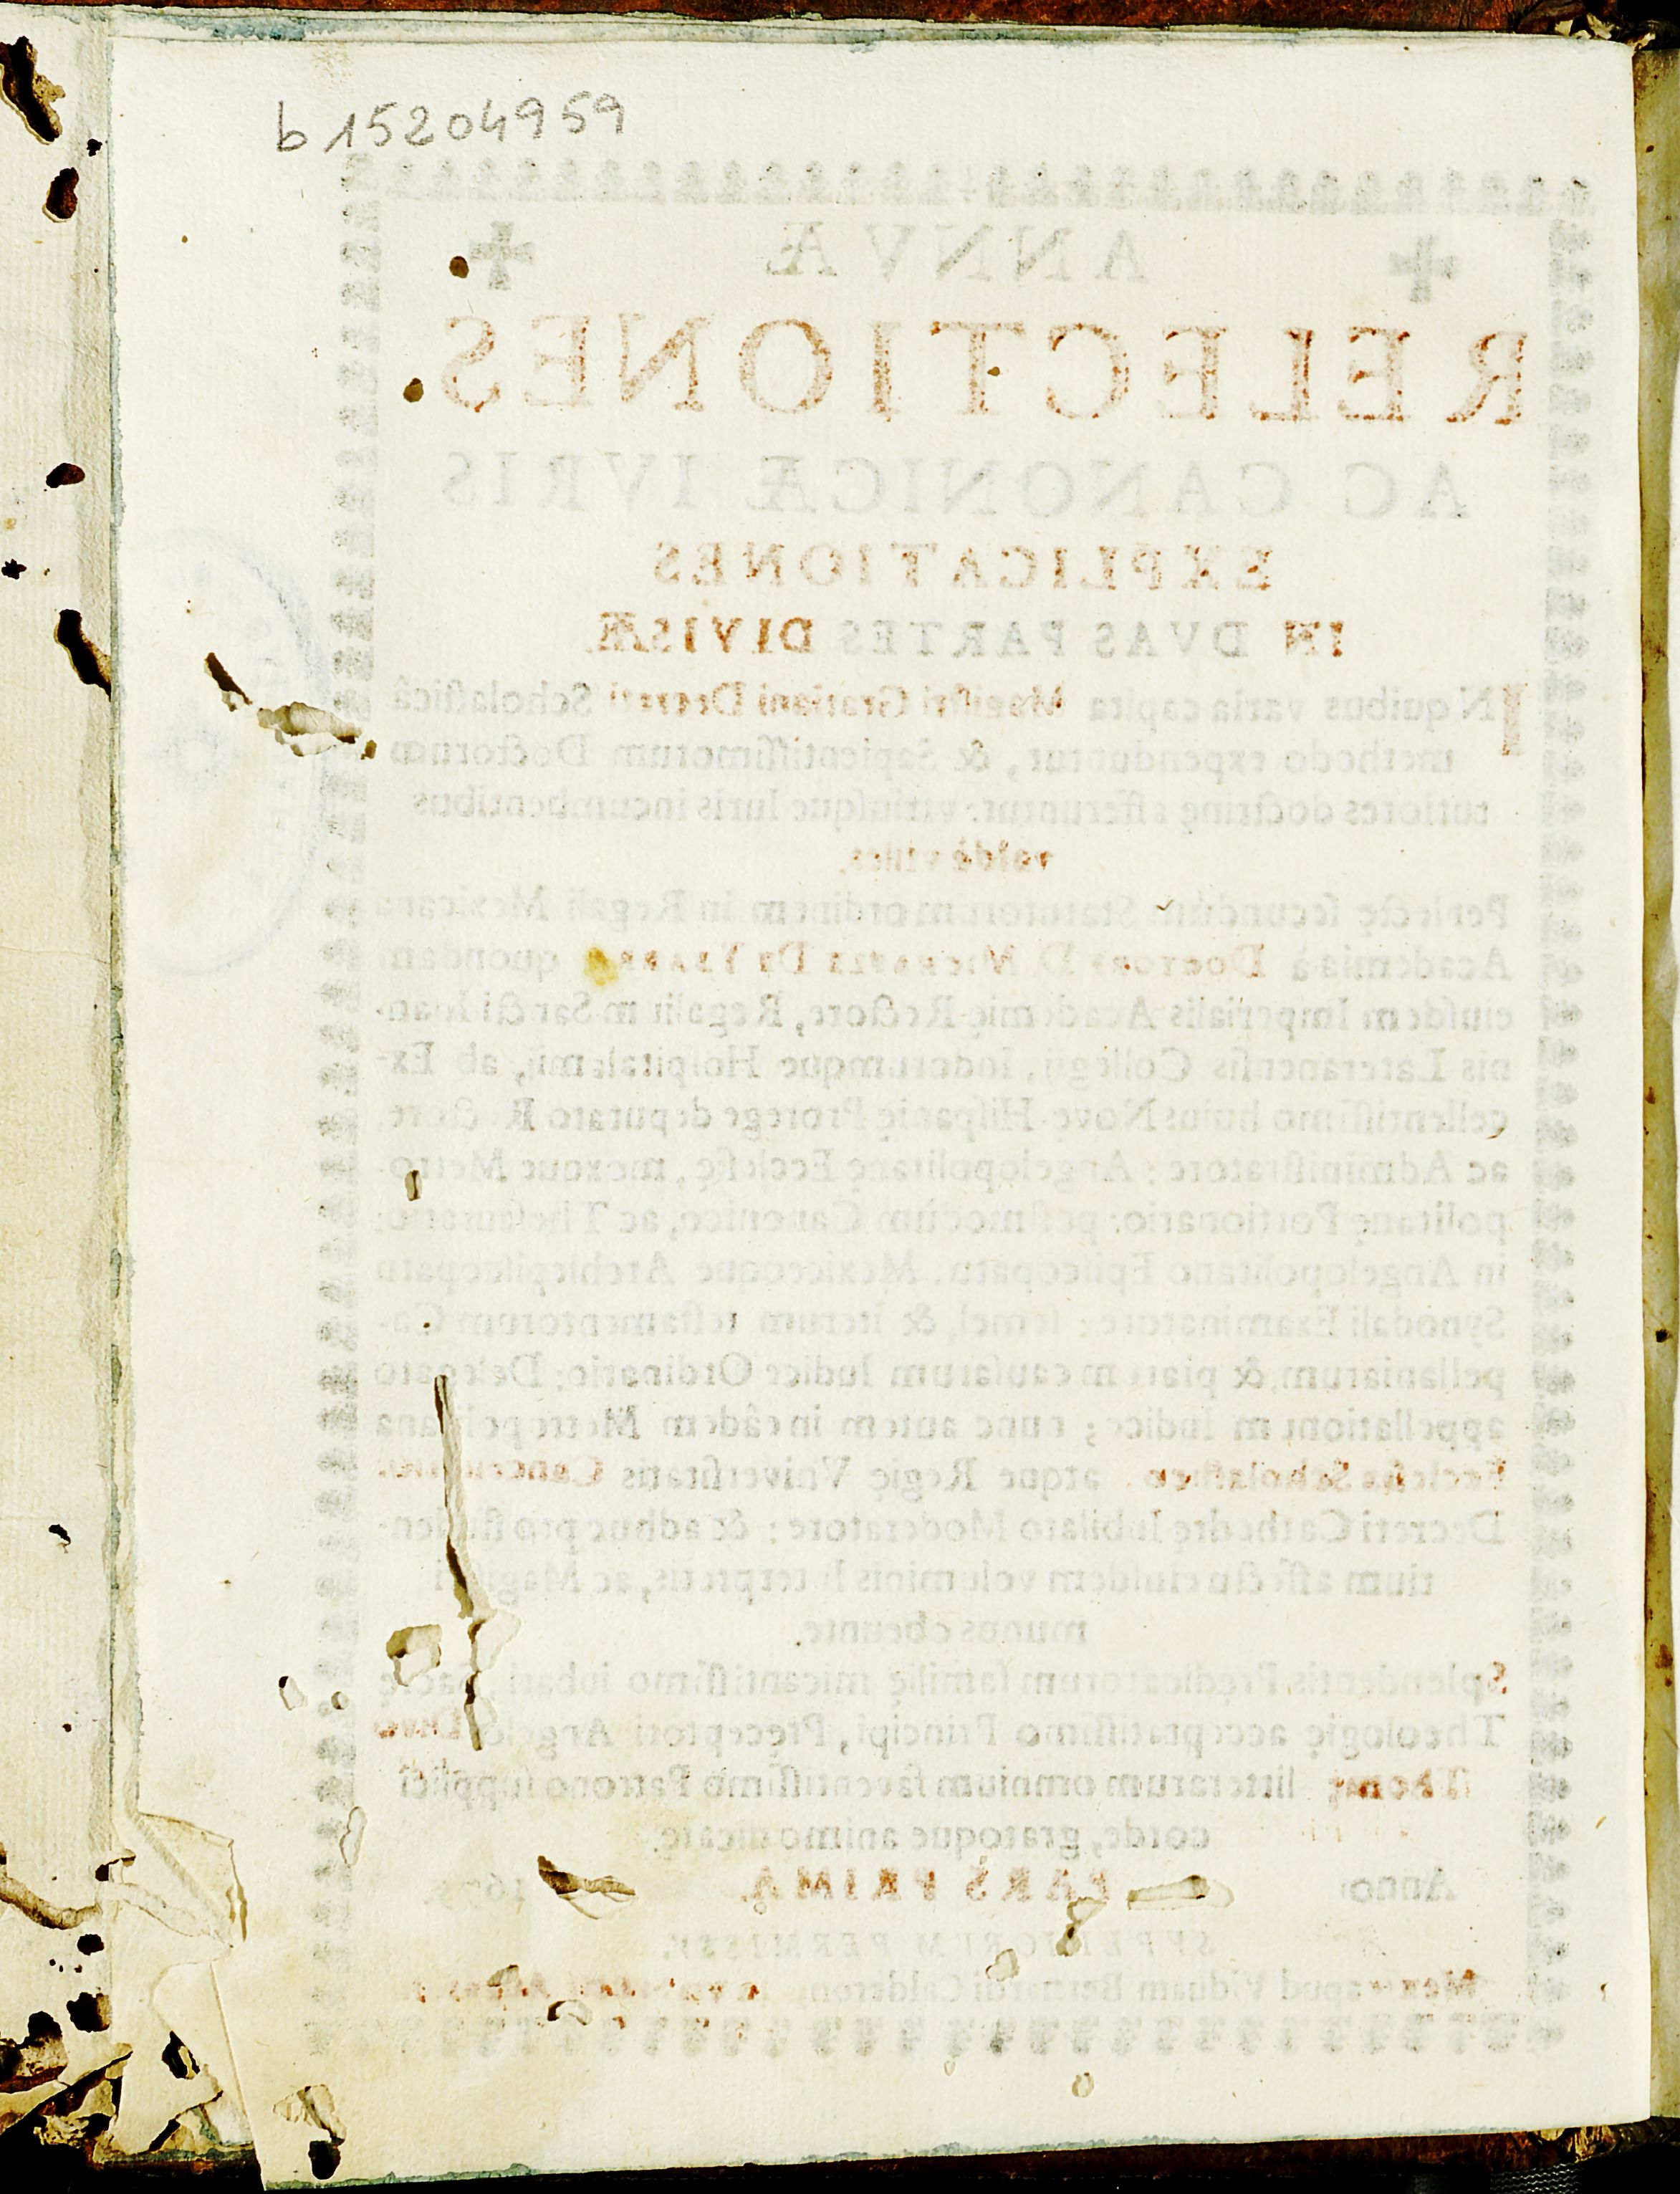 b 15204959
ANNVÆ
RELECTIONES
AC CANONICÆ IVRIS
EXPLICATIONES
IN DVAS PARTES DIVISÆ
IN quibus varia capita Magistri Gratiani Decreti Scholasticâ
methodo expenduntur, & Sapientissimorum Doctorum
tutiores doctrinę afferuntur: vtriusque Iuris incumbentibus
valdè vtiles.
Perlectę secundùm Statutorum ordinem in Regali Mexicana
Academia à DOCTORE D. DE quondam
eiusdem Imperialis Academię Rectore, Regalium Sancti Ioan-
nis Lateranensis Collegij, Indorumque Hospitalis, ab Ex-
cellentissimo huius Novę Hispanię Prorege deputato Rectore,
ac Administratore: Angelopolitanę Ecclesię, moxque Metro-
politanę Portionario: postmodum Canonico, ac Thesaurario:
in Angelopolitano Episcopatu, Mexiceoque Archiepiscopatu
Synodali Examinatore: semel, & iterum testamentorum Ca-
pellaniarum, & piarum causarum Iudice Ordinario: Delegato
appellationum Iudice; nunc autem in eâdem Metropolitana
Ecclesia Scholastico, atque Regię Vniversitatis
Decreti Cathedrę Iubilato Moderatore: & adhuc pro studen-
tium affectu eiusdem voluminis Interpretis, ac Magistri
munus obeunte.
Splendentis Prędicatorum familię micantissimo iubari, Sacrę
Theologię acceptatissimo Principi, Pręceptori Angelico Divo
Thomę litterarum omnium faventissimo Patrono supplici
corde, gratoque animo dicatę.
Anno PARS PRIMA.
SVPERIORVM PERMISSV.
apud Viduam Bernardi Calderon